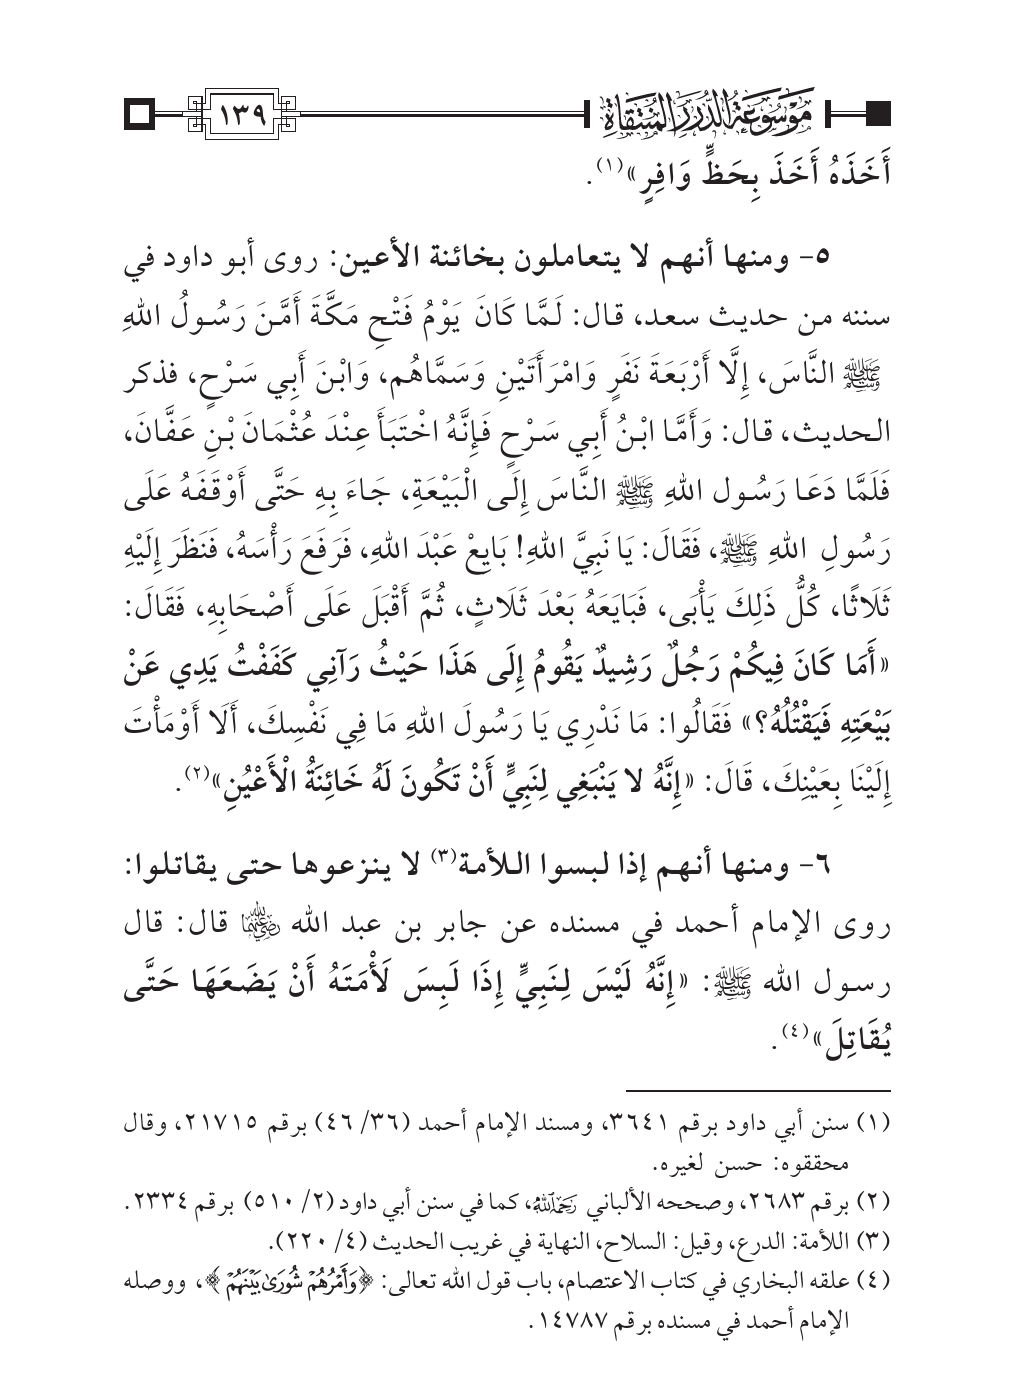 موسوعة الدرر المنتقاة
١٣٩
أَخَذَهُ أَخَذَ بِحَظٍّ وَافِرٍ»(١).
٥- ومنها أنهم لا يتعاملون بخائنة الأعين: روى أبو داود في
سننه من حديث سعد، قال: لَمَّا كَانَ يَوْمُ فَتْحِ مَكَّةَ أَمَّنَ رَسُولُ اللهِ
ﷺ النَّاسَ، إِلَّا أَرْبَعَةَ نَفَرٍ وَامْرَأَتَيْنِ وَسَمَّاهُم، وَابْنَ أَبِي سَرْحٍ، فذكر
الحديث، قال: وَأَمَّا ابْنُ أَبِي سَرْحٍ فَإِنَّهُ اخْتَبَأَ عِنْدَ عُثْمَانَ بْنِ عَفَّانَ،
فَلَمَّا دَعَا رَسُول اللهِ ﷺ النَّاسَ إِلَى الْبَيْعَةِ، جَاءَ بِهِ حَتَّى أَوْقَفَهُ عَلَى
رَسُولِ اللهِ ﷺ، فَقَالَ: يَا نَبِيَّ اللهِ! بَايِعْ عَبْدَ اللهِ، فَرَفَعَ رَأْسَهُ، فَنَظَرَ إِلَيْهِ
ثَلَاثًا، كُلُّ ذَلِكَ يَأْبَى، فَبَايَعَهُ بَعْدَ ثَلَاثٍ، ثُمَّ أَقْبَلَ عَلَى أَصْحَابِهِ، فَقَالَ:
«أَمَا كَانَ فِيكُمْ رَجُلٌ رَشِيدٌ يَقُومُ إِلَى هَذَا حَيْثُ رَآنِي كَفَفْتُ يَدِي عَنْ
بَيْعَتِهِ فَيَقْتُلُهُ؟» فَقَالُوا: مَا نَدْرِي يَا رَسُولَ اللهِ مَا فِي نَفْسِكَ، أَلَا أَوْمَأْتَ
إِلَيْنَا بِعَيْنِكَ، قَالَ: «إِنَّهُ لا يَنْبَغِي لِنَبِيٍّ أَنْ تَكُونَ لَهُ خَائِنَةُ الْأَعْيُنِ»(٢).
٦- ومنها أنهم إذا لبسوا اللأمة(٣) لا ينزعوها حتى يقاتلوا:
روى الإمام أحمد في مسنده عن جابر بن عبد الله رضي الله عنهما قال: قال
رسول الله ﷺ: «إِنَّهُ لَيْسَ لِنَبِيٍّ إِذَا لَبِسَ لَأْمَتَهُ أَنْ يَضَعَهَا حَتَّى
يُقَاتِلَ»(٤).
(١) سنن أبي داود برقم ٣٦٤١، ومسند الإمام أحمد (٣٦/ ٤٦) برقم ٢١٧١٥، وقال
محققوه: حسن لغيره.
(٢) برقم ٢٦٨٣، وصححه الألباني رحمه الله، كما في سنن أبي داود (٢/ ٥١٠) برقم ٢٣٣٤.
(٣) اللأمة: الدرع، وقيل: السلاح، النهاية في غريب الحديث (٤/ ٢٢٠).
(٤) علقه البخاري في كتاب الاعتصام، باب قول الله تعالى: ﴿وَأَمْرُهُمْ شُورَىٰ بَيْنَهُمْ﴾، ووصله
الإمام أحمد في مسنده برقم ١٤٧٨٧.